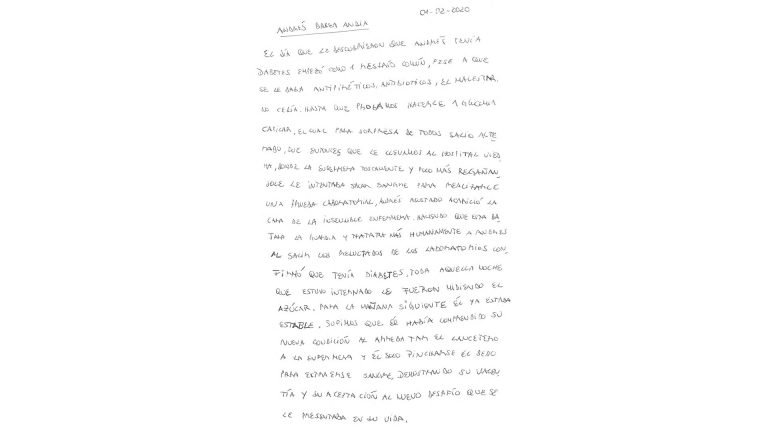 01-02-2020
ANDRÉS BAREA ANDIA
EL DÍA QUE LE DESCUBRIERON QUE ANDRÉS TENÍA
DIABETES EMPEZÓ COMO 1 RESFRÍO COMÚN, PESE A QUE
SE LE DABA ANTIPIRÉTICOS, ANTIBIOTICOS, EL MALESTAR
NO CEDÍA. HASTA QUE PROBAMOS HACERLE 1 GLICEMIA
CAPILAR, EL CUAL PARA SORPRESA DE TODOS SALIO ALTE
RADO, FUE ENTONCES QUE LE LLEVAMOS AL HOSPITAL VIED
MA, DONDE LA ENFERMERA TOSCAMENTE Y POCO MÁS REGAÑAN
DOLE LE INTENTABA SACAR SANGRE PARA REALIZARLE
UNA PRUEBA LABORATORIAL, ANDRÉS ASUSTADO LA
CARA DE LA INSENSIBLE ENFERMERA. HACIENDO QUE ESTA BA
JARA LA GUARDIA Y TRATARA MÁS HUMANAMENTE A ANDRES
AL SALIR LOS RESULTADOS DE LOS LABORATORIOS CON
FIRMÓ QUE TENÍA DIABETES, TODA AQUELLA NOCHE
QUE ESTUVO INTERNADO LE FUERON MIDIENDO EL
AZÚCAR. PARA LA MAÑANA SIGUIENTE ÉL YA ESTABA
ESTABLE. SUPIMOS QUE ÉL HABÍA COMPRENDIDO SU
NUEVA CONDICIÓN AL ARREBATAR EL LANCETERO
A LA ENFERMERA Y ÉL SOLO PINCHARSE EL DEDO
PARA EXTRAERSE SANGRE, DEMOSTRANDO SU VALEN
TÍA Y SU ACEPTACIÓN AL NUEVO DESAFÍO QUE SE
LE PRESENTABA EN SU VIDA.